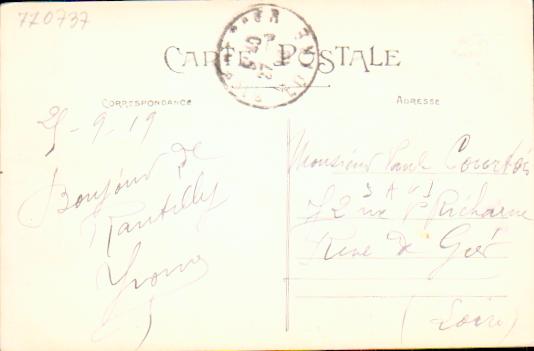 770737
CARTE POSTALE
CORRESPONDANCE
ADRESSE
25-9-19
Bonjour de
Rantilly
Yvonne
Monsieur Paul
72 rue Richarme
Rive de Gier
(Loire)